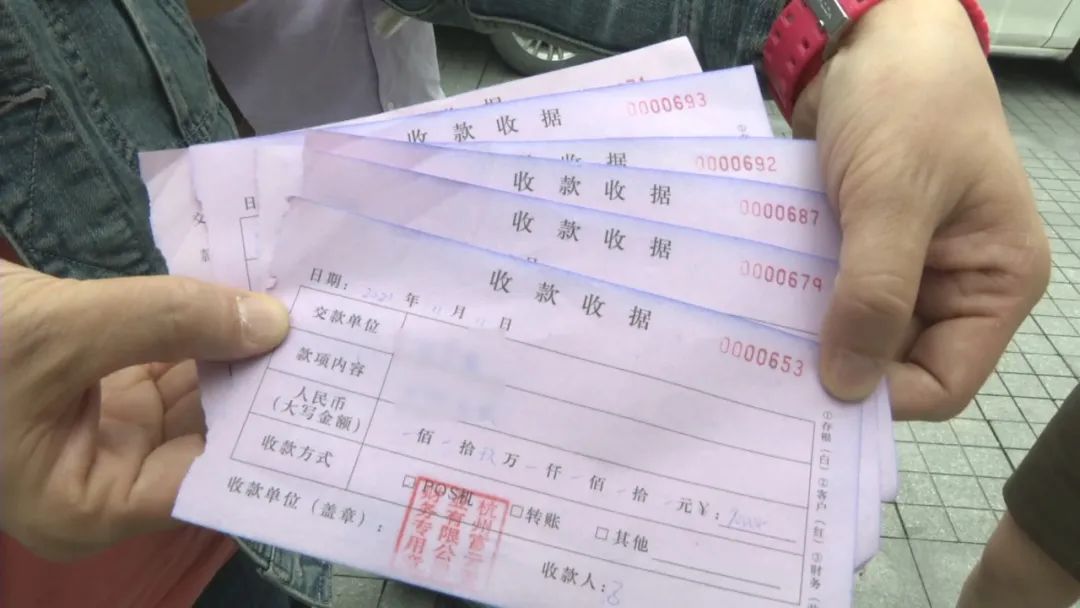 0000693
收款收据
0000692
收据
0000687
收款收据
0000679
收款收据
收款收据
0000653
日期: 年 月 日
交款单位
款项内容
人民币
(大写金额)
佰 拾 万 仟 佰 拾 元¥:
收款方式
□POS机 □转账 □其他
收款单位(盖章):
收款人:
①存根(白)②客户(红)③财务
杭州
业有限公
务专用